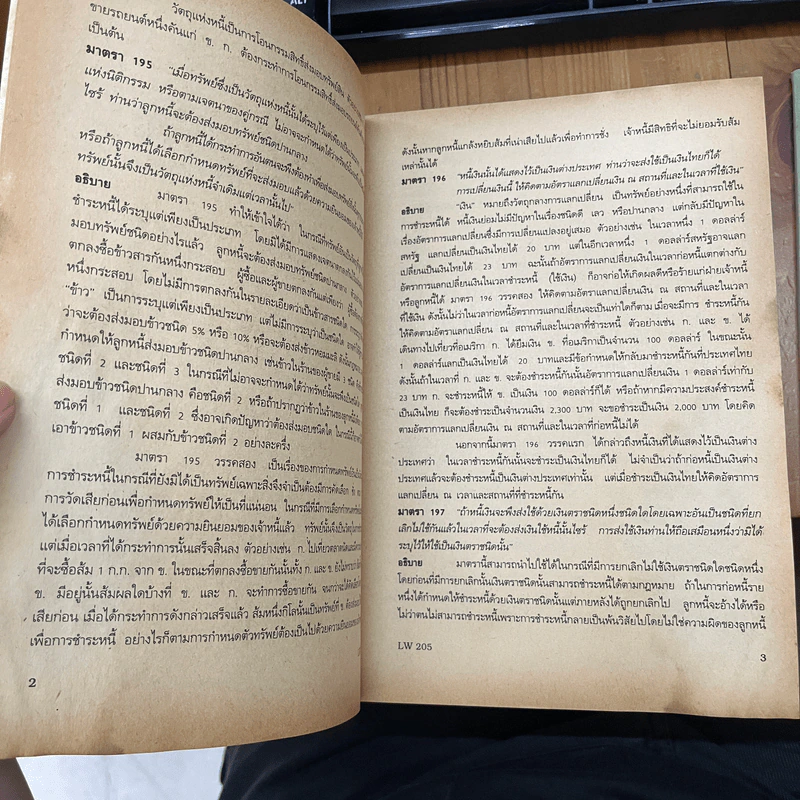 วัตถุแห่งหนี้เป็นการโอนกรรมสิทธิ์ส่งมอบทรัพย์สิน
ขายรถยนต์หนึ่งคันแก่ ข. ก. ต้องกระทำการโอนกรรมสิทธิ์ส่งมอบรถยนต์
เป็นต้น
มาตรา 195 "เมื่อทรัพย์ซึ่งเป็นวัตถุแห่งหนี้นั้นได้ระบุไว้แต่เพียงเป็นประเภท
แห่งนิติกรรม หรือตามเจตนาของคู่กรณี ไม่อาจจะกำหนดได้ว่าทรัพย์นั้น
ไซร้ ท่านว่าลูกหนี้จะต้องส่งมอบทรัพย์ชนิดปานกลาง
ถ้าลูกหนี้ได้กระทำการอันตนจะพึงต้องทำเพื่อส่งมอบทรัพย์สิ่งนั้น
หรือถ้าลูกหนี้ได้เลือกกำหนดทรัพย์ที่จะส่งมอบแล้วด้วยความยินยอม
ทรัพย์นั้นจึงเป็นวัตถุแห่งหนี้จำเดิมแต่เวลานั้นไป"
อธิบาย มาตรา 195 ทำให้เข้าใจได้ว่า ในกรณีที่ทรัพย์
ชำระหนี้ได้ระบุแต่เพียงเป็นประเภท โดยมิได้มีการแสดงเจตนาตกลง
มอบทรัพย์ชนิดอย่างไรแล้ว ลูกหนี้จะต้องส่งมอบทรัพย์ชนิดปานกลาง
ตกลงซื้อข้าวสารกันหนึ่งกระสอบ ผู้ซื้อและผู้ขายตกลงกันแต่เพียงว่า
หนึ่งกระสอบ โดยไม่มีการตกลงกันในรายละเอียดว่าเป็นข้าวสารชนิดใด
"ข้าว" เป็นการระบุแต่เพียงเป็นประเภท แต่ไม่มีการระบุว่าเป็นชนิดใด
ว่าจะต้องส่งมอบข้าวชนิด 5% หรือ 10% หรือจะต้องส่งข้าวหอมมะลิ
กำหนดให้ลูกหนี้ส่งมอบข้าวชนิดปานกลาง เช่นข้าวในร้านของผู้ขายมี 3 ชนิด
ชนิดที่ 2 และชนิดที่ 3 ในกรณีที่ไม่อาจจะกำหนดได้ว่าทรัพย์นั้น
ส่งมอบข้าวชนิดปานกลาง คือชนิดที่ 2 หรือถ้าปรากฏว่าข้าวในร้านของลูกหนี้
ชนิดที่ 1 และชนิดที่ 2 ซึ่งอาจเกิดปัญหาว่าต้องส่งมอบชนิดใด ในกรณีนี้
เอาข้าวชนิดที่ 1 ผสมกับข้าวชนิดที่ 2 อย่างละครึ่ง
มาตรา 195 วรรคสอง เป็นเรื่องของการกำหนดทรัพย์
การชำระหนี้ในกรณีที่ยังมิได้เป็นทรัพย์เฉพาะสิ่งจึงจำเป็นต้องมีการคัดเลือก
การวัดเสียก่อนเพื่อกำหนดทรัพย์ให้เป็นที่แน่นอน ในกรณีที่มีการเลือกกำหนด
ได้เลือกกำหนดทรัพย์ด้วยความยินยอมของเจ้าหนี้แล้ว ทรัพย์นั้นจึงเป็นวัตถุ
แต่เมื่อเวลาที่ได้กระทำการนั้นเสร็จสิ้นลง ตัวอย่างเช่น ก. ไปเที่ยวตลาดนัด
ที่จะซื้อส้ม 1 ก.ก. จาก ข. ในขณะที่ตกลงซื้อขายกันนั้นทั้ง ก. และ ข. ยังไม่ทราบ
ข. มีอยู่นั้นส้มผลใดบ้างที่ ข. และ ก. จะทำการซื้อขายกัน จนกว่าจะได้
เสียก่อน เมื่อได้กระทำการดังกล่าวเสร็จแล้ว ส้มหนึ่งกิโลนั้นเป็นทรัพย์ที่ ข. ต้อง
เพื่อการชำระหนี้ อย่างไรก็ตามการกำหนดตัวทรัพย์ต้องเป็นไปด้วยความยินยอม
2
ดังนั้นหากลูกหนี้แกล้งหยิบส้มที่เน่าเสียไปแล้วเพื่อทำการชั่ง เจ้าหนี้มีสิทธิที่จะไม่ยอมรับส้ม
เหล่านั้นได้
มาตรา 196 "หนี้เงินนั้นได้แสดงไว้เป็นเงินต่างประเทศ ท่านว่าจะส่งใช้เป็นเงินไทยก็ได้
การเปลี่ยนเงินนี้ ให้คิดตามอัตราแลกเปลี่ยนเงิน ณ สถานที่และในเวลาที่ใช้เงิน"
อธิบาย "เงิน" หมายถึงวัตถุกลางการแลกเปลี่ยน เป็นทรัพย์อย่างหนึ่งที่สามารถใช้ใน
การชำระหนี้ได้ หนี้เงินย่อมไม่มีปัญหาในเรื่องชนิดดี เลว หรือปานกลาง แต่กลับมีปัญหาใน
เรื่องอัตราการแลกเปลี่ยนซึ่งมีการเปลี่ยนแปลงอยู่เสมอ ตัวอย่างเช่น ในเวลาหนึ่ง 1 ดอลล่าร์
สหรัฐ แลกเปลี่ยนเป็นเงินไทยได้ 20 บาท แต่ในอีกเวลาหนึ่ง 1 ดอลล่าร์สหรัฐอาจแลก
เปลี่ยนเป็นเงินไทยได้ 23 บาท ฉะนั้นถ้าอัตราการแลกเปลี่ยนเงินในเวลาก่อหนี้แตกต่างกับ
อัตราการแลกเปลี่ยนเงินในเวลาชำระหนี้ (ใช้เงิน) ก็อาจก่อให้เกิดผลดีหรือร้ายแก่ฝ่ายเจ้าหนี้
หรือลูกหนี้ได้ มาตรา 196 วรรคสอง ให้คิดตามอัตราแลกเปลี่ยนเงิน ณ สถานที่และในเวลา
ที่ใช้เงิน ดังนั้นไม่ว่าในเวลาก่อหนี้อัตราการแลกเปลี่ยนจะเป็นเท่าใดก็ตาม เมื่อจะมีการ ชำระหนี้กัน
ให้คิดตามอัตราแลกเปลี่ยน ณ สถานที่และในเวลาที่ชำระหนี้ ตัวอย่างเช่น ก. และ ข. ได้
เดินทางไปเที่ยวที่อเมริกา ก. ได้ยืมเงิน ข. ที่อเมริกาเป็นจำนวน 100 ดอลล่าร์ ในขณะนั้น
1 ดอลล่าร์แลกเป็นเงินไทยได้ 20 บาทและมีข้อกำหนดให้กลับมาชำระหนี้กันที่ประเทศไทย
ดังนั้นถ้าในเวลาที่ ก. และ ข. จะต้องชำระหนี้กันนั้นอัตราการแลกเปลี่ยนเงิน 1 ดอลล่าร์เท่ากับ
23 บาท ก. จะชำระหนี้ให้ ข. เป็นเงิน 100 ดอลล่าร์ก็ได้ หรือถ้าหากมีความประสงค์ชำระหนี้
เป็นเงินไทย ก็จะต้องชำระเป็นจำนวนเงิน 2,300 บาท จะขอชำระเป็นเงิน 2,000 บาท โดยคิด
ตามอัตราการแลกเปลี่ยนเงิน ณ สถานที่และในเวลาที่ก่อหนี้ไม่ได้
นอกจากนี้มาตรา 196 วรรคแรก ได้กล่าวถึงหนี้เงินที่ได้แสดงไว้เป็นเงินต่าง
ประเทศว่า ในเวลาชำระหนี้กันนั้นจะชำระเป็นเงินไทยก็ได้ ไม่จำเป็นว่าถ้าก่อหนี้เป็นเงินต่าง
ประเทศแล้วจะต้องชำระหนี้เป็นเงินต่างประเทศเท่านั้น แต่เมื่อชำระเป็นเงินไทยให้คิดอัตราการ
แลกเปลี่ยน ณ เวลาและสถานที่ที่ชำระหนี้กัน
มาตรา 197 "ถ้าหนี้เงินจะพึงส่งใช้ด้วยเงินตราชนิดหนึ่งชนิดใดโดยเฉพาะอันเป็นชนิดที่ยก
เลิกไม่ใช้กันแล้วในเวลาที่จะต้องส่งเงินใช้หนี้นั้นไซร้ การส่งใช้เงินท่านให้ถือเสมือนหนึ่งว่ามิได้
ระบุไว้ให้ใช้เป็นเงินตราชนิดนั้น"
อธิบาย มาตรานี้สามารถนำไปใช้ได้ในกรณีที่มีการยกเลิกไม่ใช้เงินตราชนิดใดชนิดหนึ่ง
โดยก่อนที่มีการยกเลิกนั้นเงินตราชนิดนั้นสามารถชำระหนี้ได้ตามกฎหมาย ถ้าในการก่อหนี้ราย
หนึ่งได้กำหนดให้ชำระหนี้ด้วยเงินตราชนิดนั้นแต่ภายหลังได้ถูกยกเลิกไป ลูกหนี้จะอ้างได้หรือ
ไม่ว่าตนไม่สามารถชำระหนี้เพราะการชำระหนี้กลายเป็นพ้นวิสัยไปโดยไม่ใช่ความผิดของลูกหนี้
LW 205
3